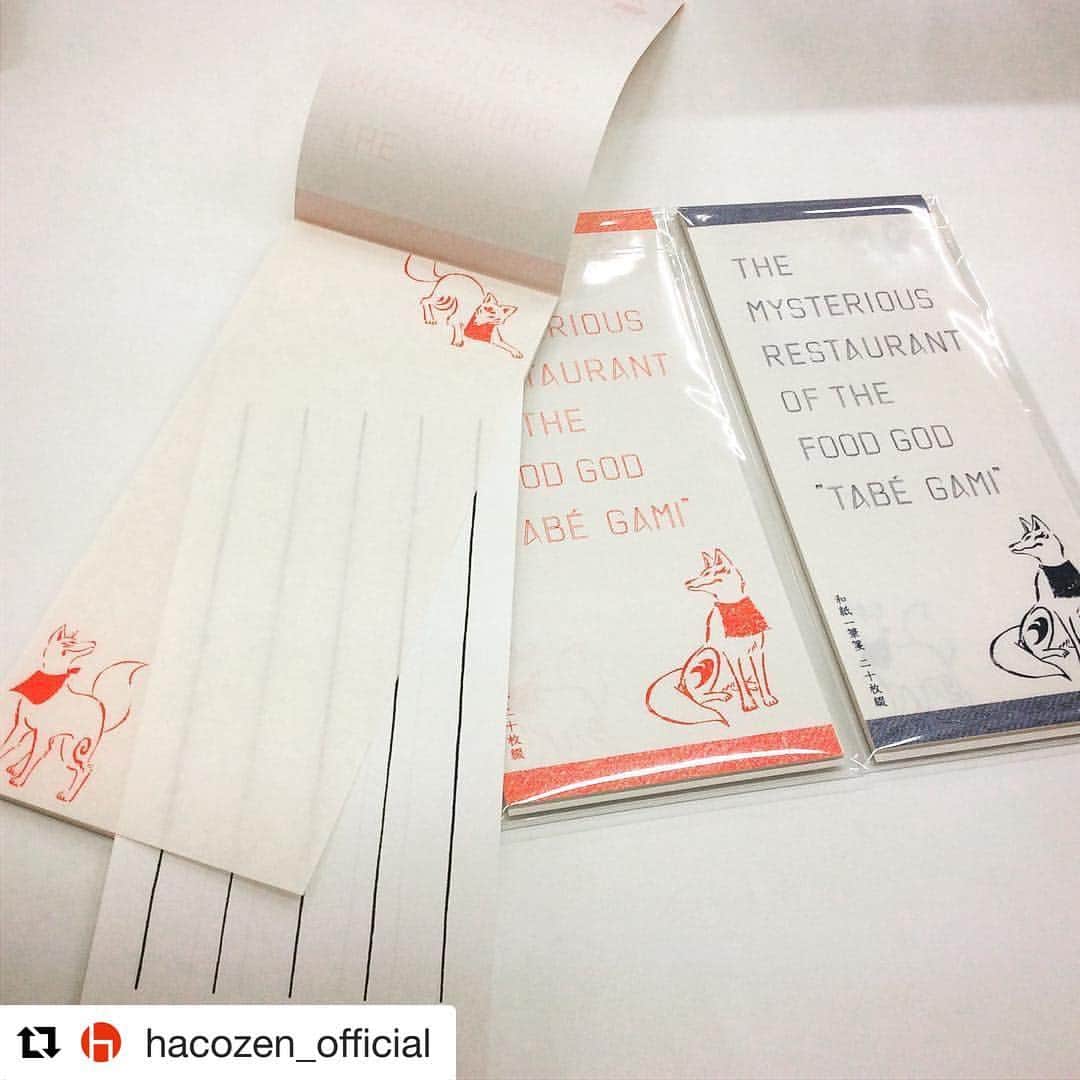 RIOUS
TAURANT
THE
OD GOD
ABÉ GAMI"
二十枚綴
THE
MYSTERIOUS
RESTAURANT
OF THE
FOOD GOD
"TABÉ GAMI"
和紙一筆箋 二十枚綴
hacozen_official